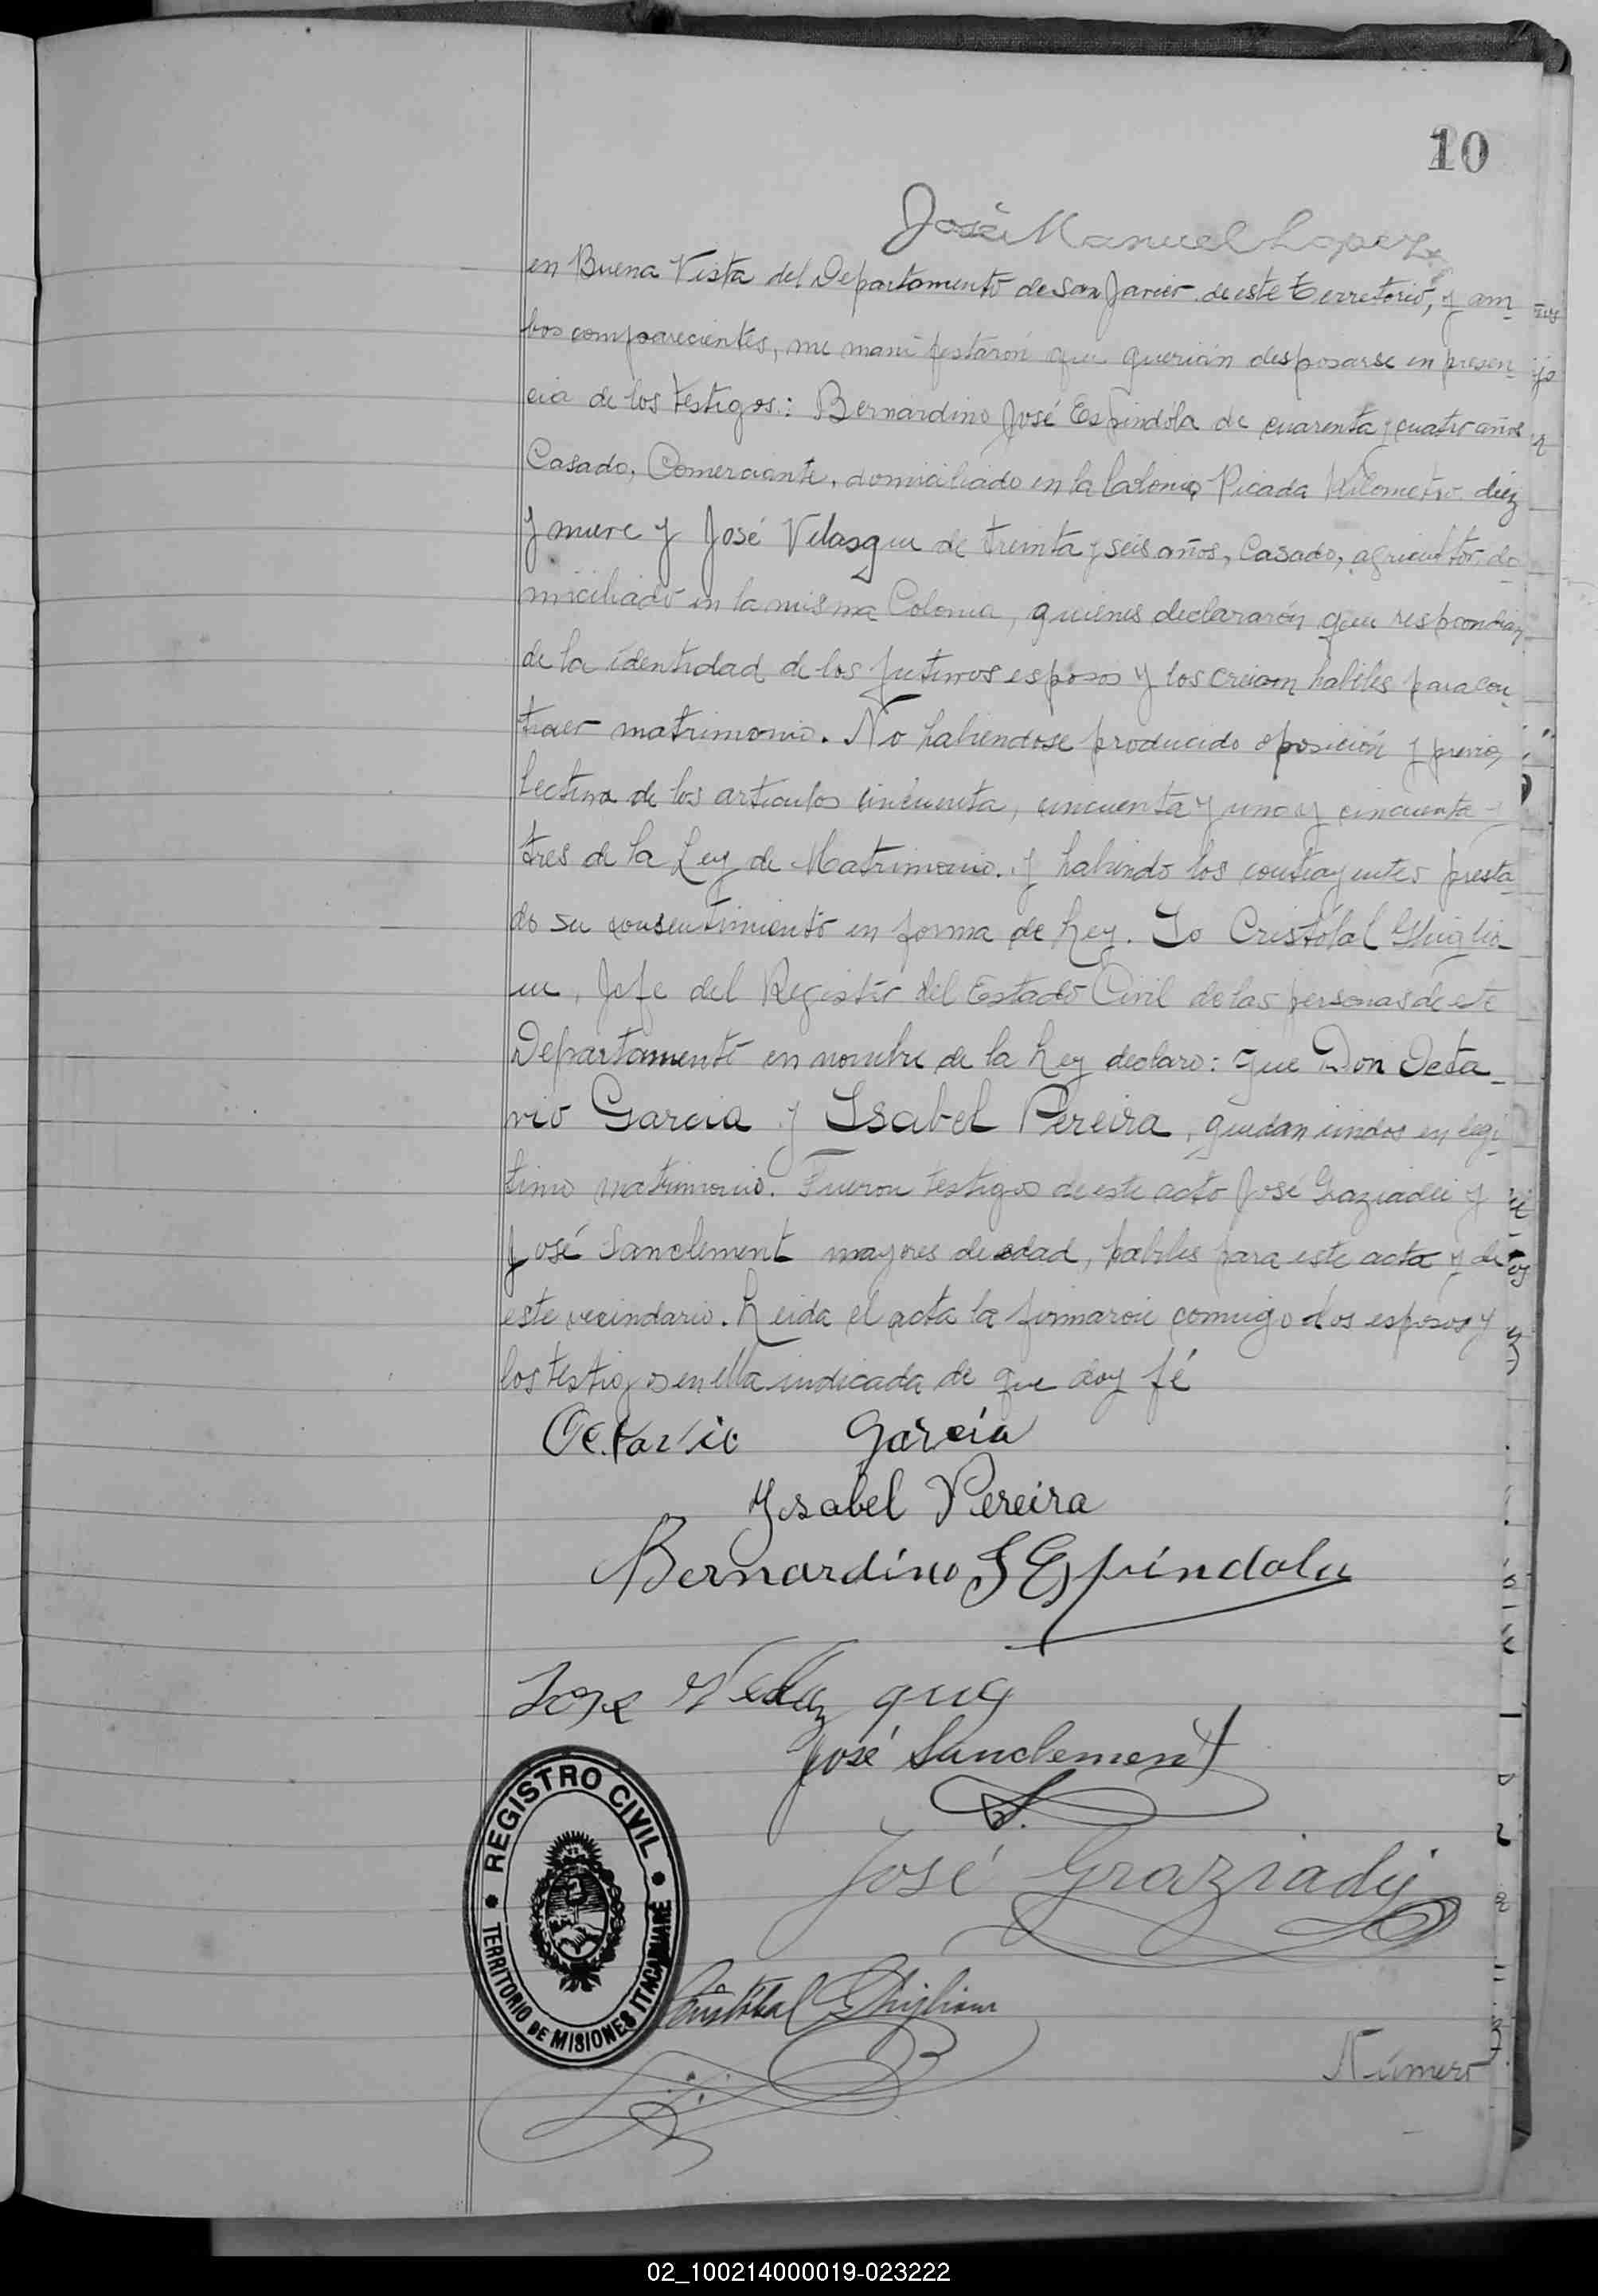 10
José Manuel Lopez
en Buena Vista del Departamento de San Javier de este territorio, y am-
bos comparecientes, me manifestarón que querian desposarse en presen-
cia de los testigos: Bernardino José Espindóla de cuarenta y cuatro años
Casado, Comerciante, domiciliado en la Colonia Picada Kilometro diez
y nueve y José Velasque de treinta y seis años, Casado, agricultor do
miciliado en la misma Colonia, quienes declararón que respondian
de la identidad de los futuros esposos y los creian habiles para con-
traer matrimonio. No habiendose producido oposición y previa
lectura de los articulos cincuenta, cincuenta y uno y cincuenta y
tres de la Ley de Matrimonio. y habiendo los contrayentes presta-
do su consentimiento en forma de Ley. Yo Cristóbal Ghiglio
ne, Jefe del Registro del Estado Civil de las personas de este
Departamento en nombre de la Ley declaro: que Don Octa-
vio Garcia y Isabel Pereira, quedan unidos en legi-
timo matrimonio. Fueron testigos de este acto José Graziadei y
José Sanclement mayores de edad, habiles para este acta y de
este vecindario. Leida el acta la firmaron comigo los esposos y
los testigos en ella indicada de que doy fé
Octavio Garcia
Ysabel Pereira
Bernardino J Espindola
Jose Velaz que
José Sanclement
José Graziadei
REGISTRO CIVIL
TERRITORIO DE MISIONES ITACARUARÉ
Cristóbal Ghiglione
Número
02_100214000019-023222